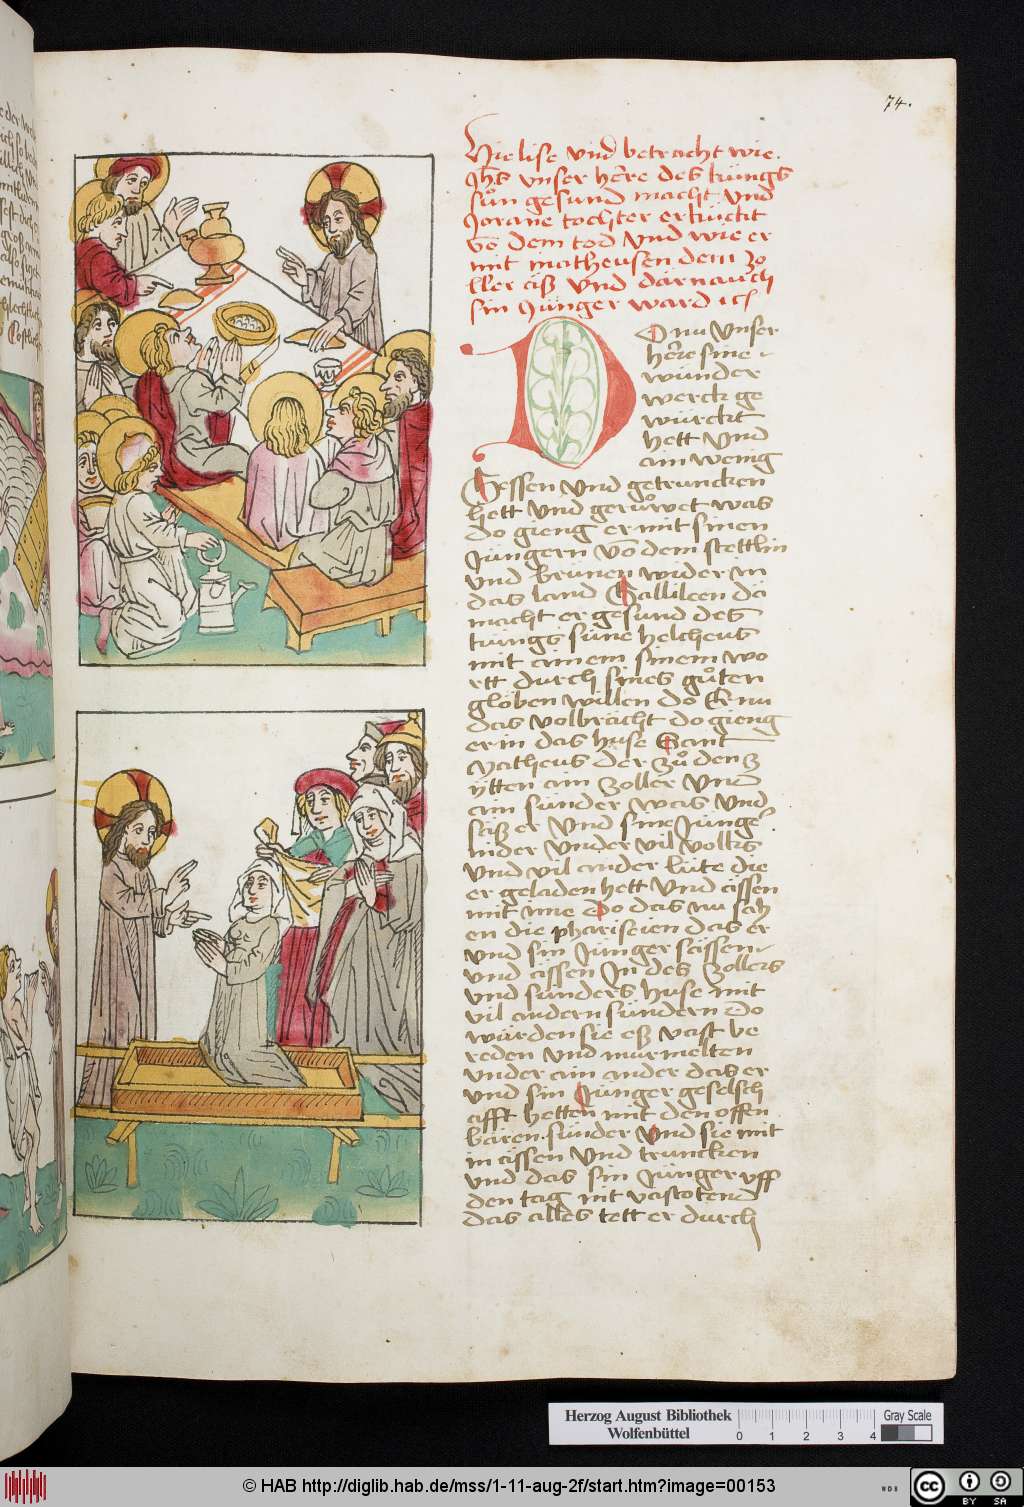 74.
Hie lise vnd betracht wie
Jhs vnser here des küngs
sůn gesund macht vnd
Jorane tochter erkückt
vō dem tod vnd wie er
mit matheusen dem zo
ller äß vnd därnäuch
sin Jünger ward ıc
Do nu vnser
here sine
wunder
werck ge
würckt
hett vnd
ain wenig
Gessen vnd getruncken
hett vnd gerůwet was
do gieng er mit sinen
Jüngern vō dem stettlin
vnd brünen wider in
das land Gallileen dä
macht er gesund des
küngs süne helcheus
mit ainem sinem wo
rtt durch sines gůten
globen willen do Er nu
das volbrächt do gieng
er in das huse Sant
Matheus der zů den z
ytten ain zoller vnd
ain sünder was vnd
säß er vnd sine Jünger
nider vnder vil volks
vnd vil ander lüte die
er geladen hett vnd ässen
mit ime Do das nu sah
en die phariseien das er
vnd sin Jünger sässen
vnd ässen Jn des zollers
vnd sünders huse mit
vil andern sündern Do
würden sie eß vast be
reden vnd murmelten
vnder ain ander das er
vnd sin Jünger geselsch
afft hetten mit den offen
bären sünder vnd sie mit
in ässen vnd truncken
vnd das sin Jünger vff
den tag nit vastotend
das alles tett er durch
Herzog August Bibliothek
Wolfenbüttel
0 1 2 3 4
Gray Scale
© HAB http://diglib.hab.de/mss/1-11-aug-2f/start.htm?image=00153
WDB
cc BY SA